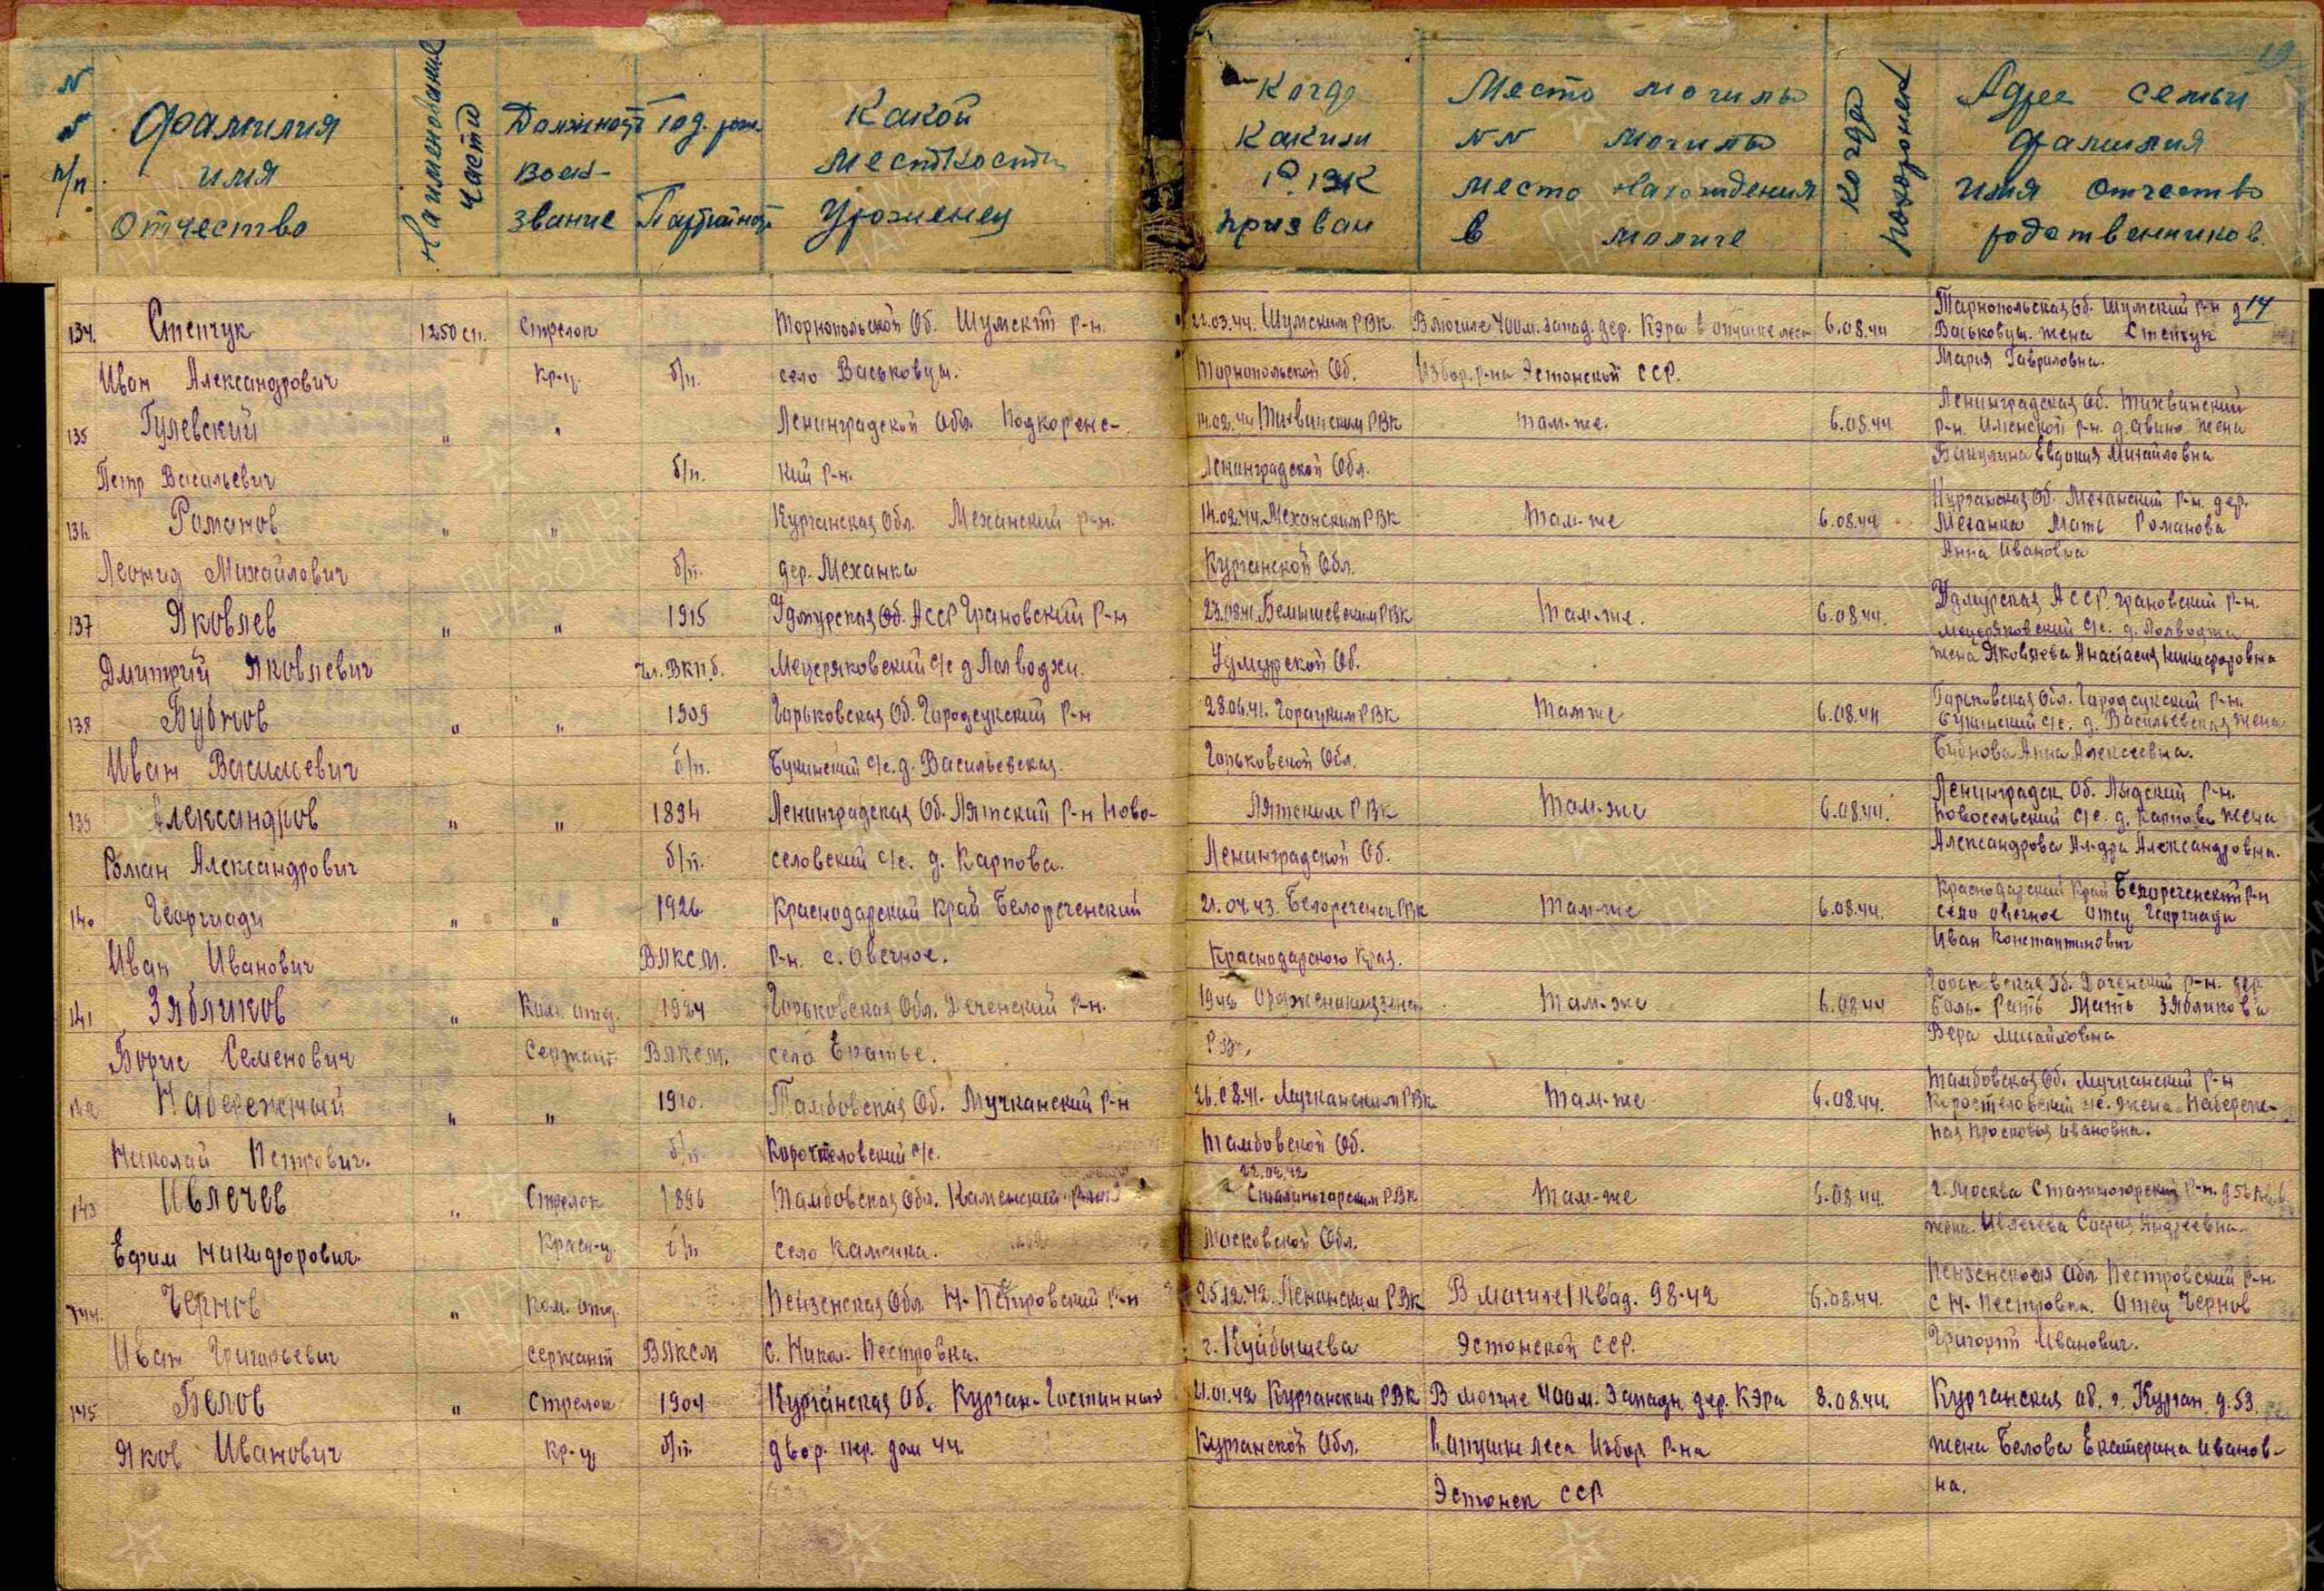 N N п/п
Фамилия имя Отчество
Наименование части
Должность воен- звание
Год. рож. Партийност
Какой местности Уроженец
Когда Каким РВК призван
Место могилы NN могилы место нахождения в могиле
Когда похоронен
Адрес семьи фамилия имя отчество родственников.
19
134. Степчук 1250 сп. Стрелок Торнопольской Об. Шумскт р-н. 22.03.44. Шумским РВК В могиле 400м. запад. дер. Кэра в опушке леса 6.08.44 Тарнопольская Об. Шумский р-н д 14
Васьковцы. жена Степчук
Иван Александрович Кр-ц. б/п. село Васьковцы. Торнопольской Об. Избор. р-на Эстонской ССР. Мария Гавриловна.
135 Гулевский " " Ленинградской Обл. Подкоренс- 14.02.44 Тихвинским РВК там-же. 6.08.44 Ленинградская Об. Тихвинский
р-н. д. Авино жена
Петр Васильевич б/п. кий р-н. Ленинградской Обл. Бакулина Евдокия Михайловна
136 Романов " " Курганская Обл. Механский р-н. 14.02.44. Механским РВК Там-же 6.08.44 Курганская Об. Механский р-н. дер.
Механка Мать Романова
Леонид Михайлович б/п. дер. Механка Курганской Обл. Анна Ивановна
137 Яковлев " " 1915 Удмурская Об. АССР Грановский р-н РВК Там-же. 6.08.44. Удмурская АССР. Грановский р-н.
Мещеряковский с/с. д.
Дмитрий Яковлевич чл. ВКП.б. Мещеряковский с/с д Удмурской Об. жена Яковлева Анастасия Никифоровна
138 Бубнов " " 1909 Горьковская Об. Городецкский р-н 28.06.41. РВК Тамже 6.08.44 Горьковская Обл. Городецкский р-н.
Букинский с/с. д. Васильевская жена
Иван Васильевич б/п. Букинский с/с. д. Васильевская. Горьковской Обл. Бубнова Анна Алексеевна.
139 Александров " " 1894 Ленинградская Об. Лятский р-н Ново- Лятским РВК Там-же 6.08.44. Ленинградск. Об. Лядский р-н.
Новосельский с/с. д. Карпова жена
Роман Александрович б/п. селовский с/с. д. Карпова. Ленинградской Об. Александрова Ал-дра Александровна.
140 Георгиади " " 1926 Краснодарский край Белореченский 21.04.43. Белореченск РВК Там-же 6.08.44. Краснодарский Край Белореченский р-н
село Овечное отец Георгиади
Иван Иванович ВЛКСМ. р-н. с. Овечное. Краснодарского Края. Иван Константинович
141 Зябликов " Ком. отд. 1924 Горьковская Обл. р-н. 1942 Там-же 6.08.44 Горьковская Об. р-н. дер.
Боль. Рать Мать Зябликова
Борис Семенович Сержант. ВЛКСМ. село РВК. Вера Михайловна
142 Набережный " " 1910. Тамбовская Об. Мучканский р-н 26.08.41. Мучканским РВК Там-же 6.08.44. Тамбовская Об. Мучканский р-н
с/с. жена Набереж-
Николай Петрович. б/п. с/с. Тамбовской Об. ная Просковья Ивановна.
22.02.42
143 Ивлечев " Стрелок 1896 Тамбовская Обл. Каменский р-н Сталиногорским РВК Там-же 6.08.44. г. Москва Сталиногорский р-н. д 56 кв. 6.
Ефим Никифорович. Красн-ц. б/п село Каменка. Московской Обл. жена. Ивлечева София Андреевна.
144. Чернов " Ком. отд. Пензенская Обл. Н-Пестровский р-н 25.12.42. Ленинским РВК В могиле 1 квад. 98-42 6.08.44. Пензенская Обл. Пестровский р-н.
с Н-Пестровка. Отец Чернов
Иван Григорьевич сержант ВЛКСМ с. Никол-Пестровка. г. Куйбышева Эстонской ССР. Григорий Иванович.
145 Белов " Стрелок 1904 Курганская Об. Курган-Гостинный 21.01.42 Курганским РВК В могиле 400м. Западн. дер. Кэра 8.08.44. Курганская об. г. Курган д. 53.
Яков Иванович Кр-ц б/п. двор. пер. дом 44. Курганской Обл. в опушке леса Избор. р-на жена Белова Екатерина Иванов-
Эстонск ССР на.